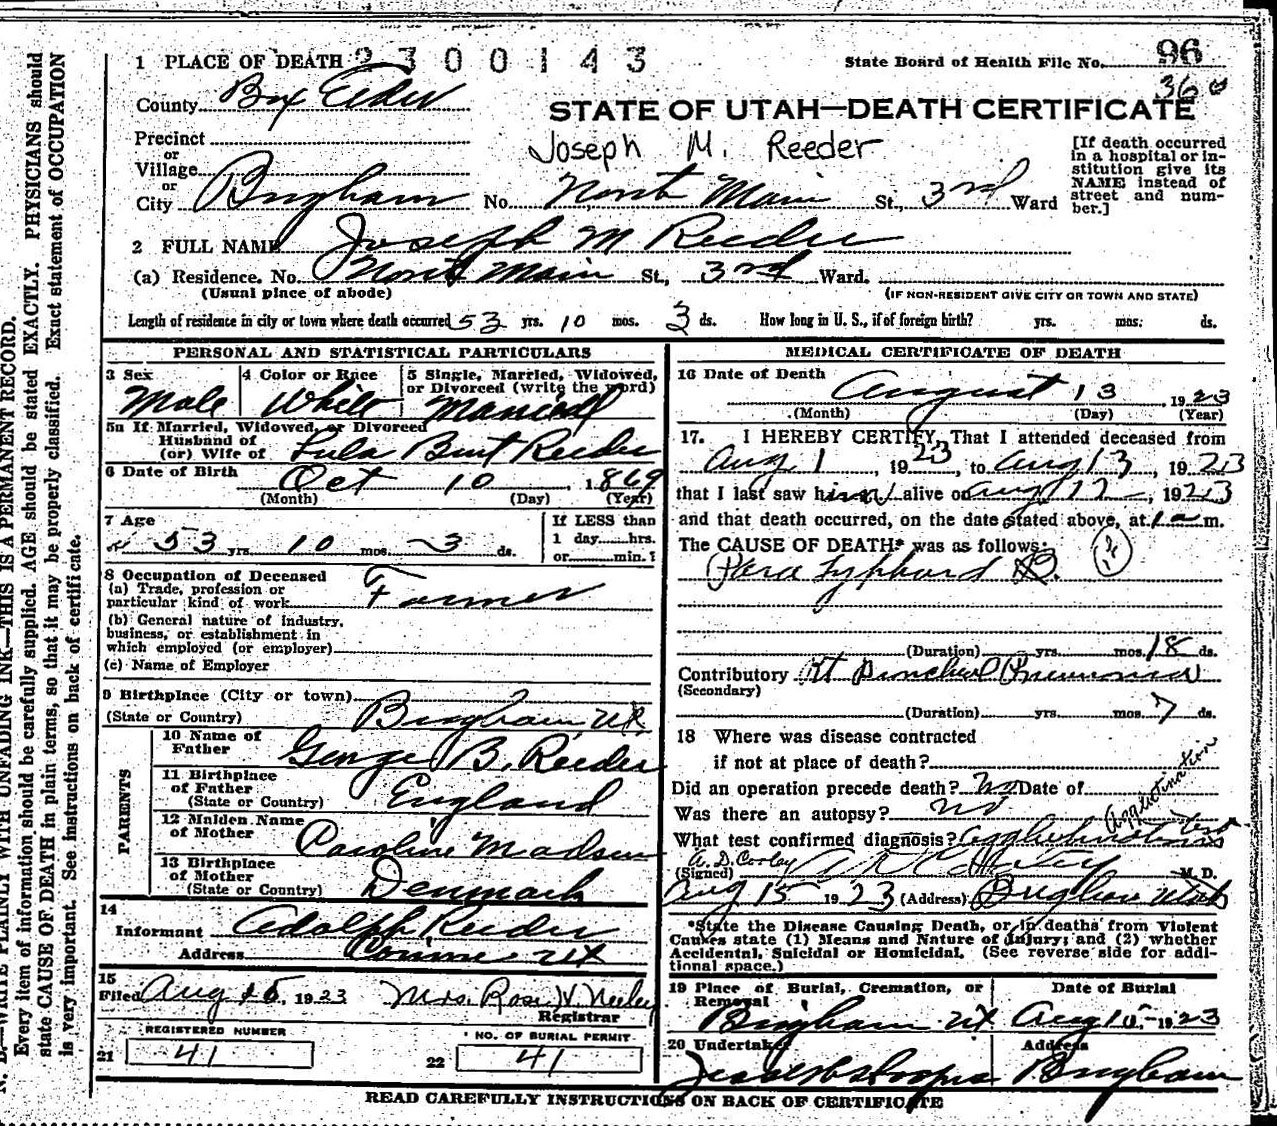 1 PLACE OF DEATH 2300143
State Board of Health File No. 96
36
County Box Elder
STATE OF UTAH—DEATH CERTIFICATE
Precinct
or
Village
or
City Brigham
Joseph M. Reeder
No. North Main St., 3rd Ward
[If death occurred
in a hospital or in-
stitution give its
NAME instead of
street and num-
ber.]
2 FULL NAME Joseph M Reeder
(a) Residence. No. North Main St., 3rd Ward.
(Usual place of abode)
(IF NON-RESIDENT GIVE CITY OR TOWN AND STATE)
Length of residence in city or town where death occurred 53 yrs. 10 mos. 3 ds. How long in U. S., if of foreign birth? yrs. mos. ds.
PERSONAL AND STATISTICAL PARTICULARS
3 Sex
Male
4 Color or Race
White
5 Single, Married, Widowed,
or Divorced (write the word)
Married
5a If Married, Widowed, or Divorced
Husband of
(or) Wife of Lula Burt Reeder
6 Date of Birth
Oct 10, 1869
(Month) (Day) (Year)
7 Age
53 yrs. 10 mos. 3 ds.
If LESS than
1 day....hrs.
or....min.?
8 Occupation of Deceased
(a) Trade, profession or
particular kind of work Farmer
(b) General nature of industry,
business, or establishment in
which employed (or employer)
(c) Name of Employer
9 Birthplace (City or town)
(State or Country) Brigham, Ut.
PARENTS
10 Name of
Father George B. Reeder
11 Birthplace
of Father
(State or Country) England
12 Maiden Name
of Mother Caroline Madsen
13 Birthplace
of Mother
(State or Country) Denmark
14
Informant Adolph Reeder
Address Corinne Ut
15
Filed Aug 15, 1923 Mrs. Rose W. Neeley
Registrar
REGISTERED NUMBER
21 41
NO. OF BURIAL PERMIT
22 41
MEDICAL CERTIFICATE OF DEATH
16 Date of Death
August 13 1923
(Month) (Day) (Year)
17. I HEREBY CERTIFY, That I attended deceased from
Aug 1, 1923, to Aug 13, 1923
that I last saw him alive on Aug 12, 1923
and that death occurred, on the date stated above, at 1 a m.
The CAUSE OF DEATH* was as follows:
Para Typhoid B.
(Duration) yrs. mos. 18 ds.
Contributory Rt Bronchial Pneumonia
(Secondary)
(Duration) yrs. mos. 7 ds.
18 Where was disease contracted
if not at place of death?
Did an operation precede death? No Date of
Was there an autopsy? no
Agglutination
What test confirmed diagnosis? Agglutination test
A. D. Cooley
(Signed) M. D.
Aug 15 1923 (Address) Brigham Utah
*State the Disease Causing Death, or in deaths from Violent
Causes state (1) Means and Nature of Injury; and (2) whether
Accidental, Suicidal or Homicidal. (See reverse side for addi-
tional space.)
19 Place of Burial, Cremation, or
Removal
Brigham Ut
Date of Burial
Aug 15 1923
20 Undertaker
Address
Brigham
READ CAREFULLY INSTRUCTIONS ON BACK OF CERTIFICATE
N. B.—WRITE PLAINLY WITH UNFADING INK—THIS IS A PERMANENT RECORD.
Every item of information should be carefully supplied. AGE should be stated EXACTLY. PHYSICIANS should
state CAUSE OF DEATH in plain terms, so that it may be properly classified. Exact statement of OCCUPATION
is very important. See instructions on back of certificate.